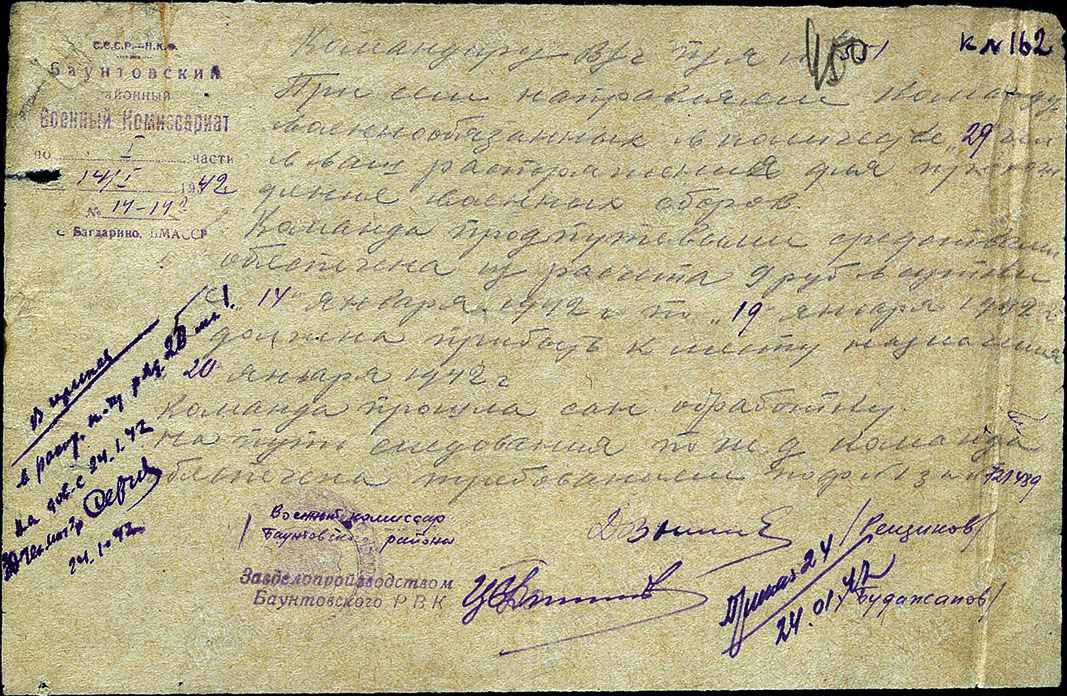 С.С.С.Р.—Н.К.О.
Баунтовский
районный
Военный Комиссариат
по I части
14/I 1942
№ 14-14
с. Багдарино, БМАССР
к № 162
Командиру В/ч п/я №
При сем направляем команду
военнообязанных в количестве „29" чел
в ваш распоряжения для прохож
дение военных сборов.
Команда продпутевыми средствами
обеспечена из расчета 9 руб в сутки
с „14" января 1942 г по „19" января 1942 г
должна прибыть к месту назначения
20 января 1942 г
Команда прошла сан обработку
на пути следования по ж д команда
обеспечена требованиями
721489
24.1.42
24.1.42
Военный комиссар
Баунтовского района
/Рещиков/
Завделопроизводством
Баунтовского РВК
/Будажапов/
Приказ 24
24.01.42